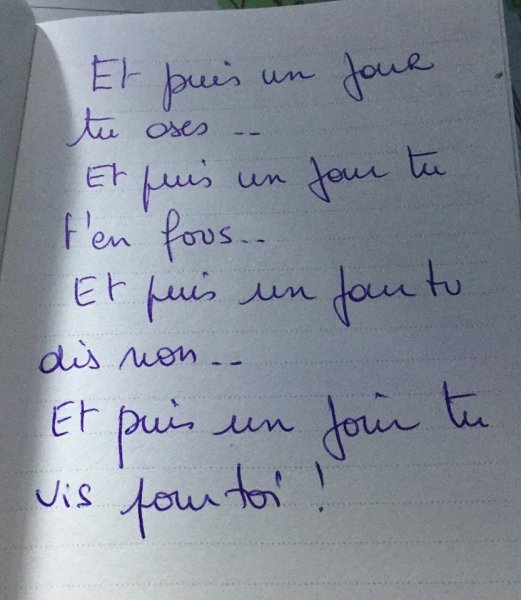 Et puis un jour
tu oses..
Et puis un jour tu
t'en fous..
Et puis un jour tu
dis non..
Et puis un jour tu
vis pour toi !